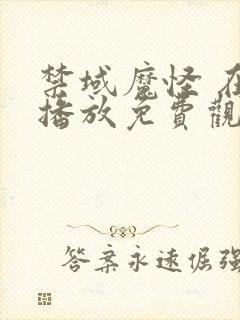 禁域魔怪 在
播放免費觀
答案永遠倔強